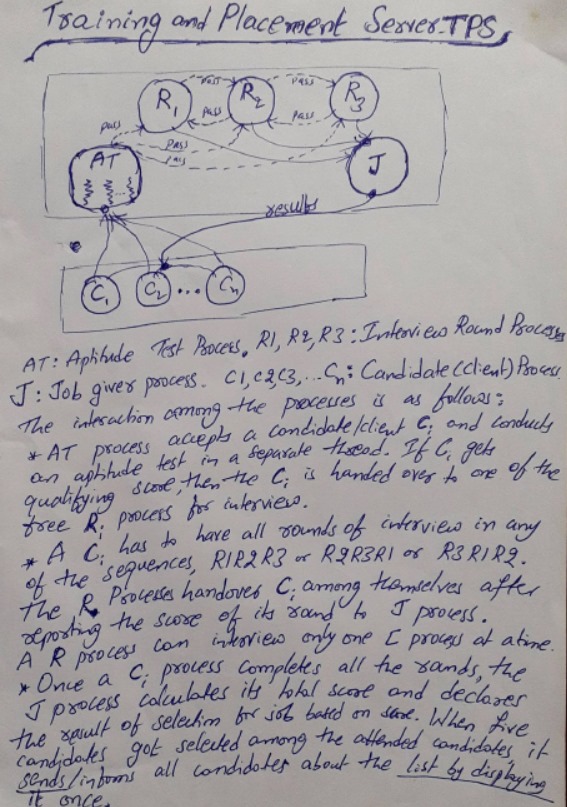 Training and Placement Server-TPS
R1
pass
R2
pass
R3
pass
pass
pass
pass
pass
AT
J
results
C1
C2
...
Cn
AT: Aptitude Test Process. R1, R2, R3: Interview Round Processes
J: Job giver process. C1, C2, C3, ... Cn: Candidate (client) Process
The interaction among the processes is as follows:
* AT process accepts a candidate/client Ci and conducts
an aptitude test in a separate thread. If Ci gets
qualifying score, then the Ci is handed over to one of the
free Ri process for interview.
* A Ci has to have all rounds of interview in any
of the sequences, R1R2R3 or R2R3R1 or R3R1R2.
The R Processes handover Ci among themselves after
reporting the score of its round to J process.
A R process can interview only one C process at atime.
* Once a Ci process completes all the rounds, the
J process calculates its total score and declares
the result of selection for job based on score. When five
candidates got selected among the attended candidates, it
sends/informs all candidates about the list by displaying
it once.